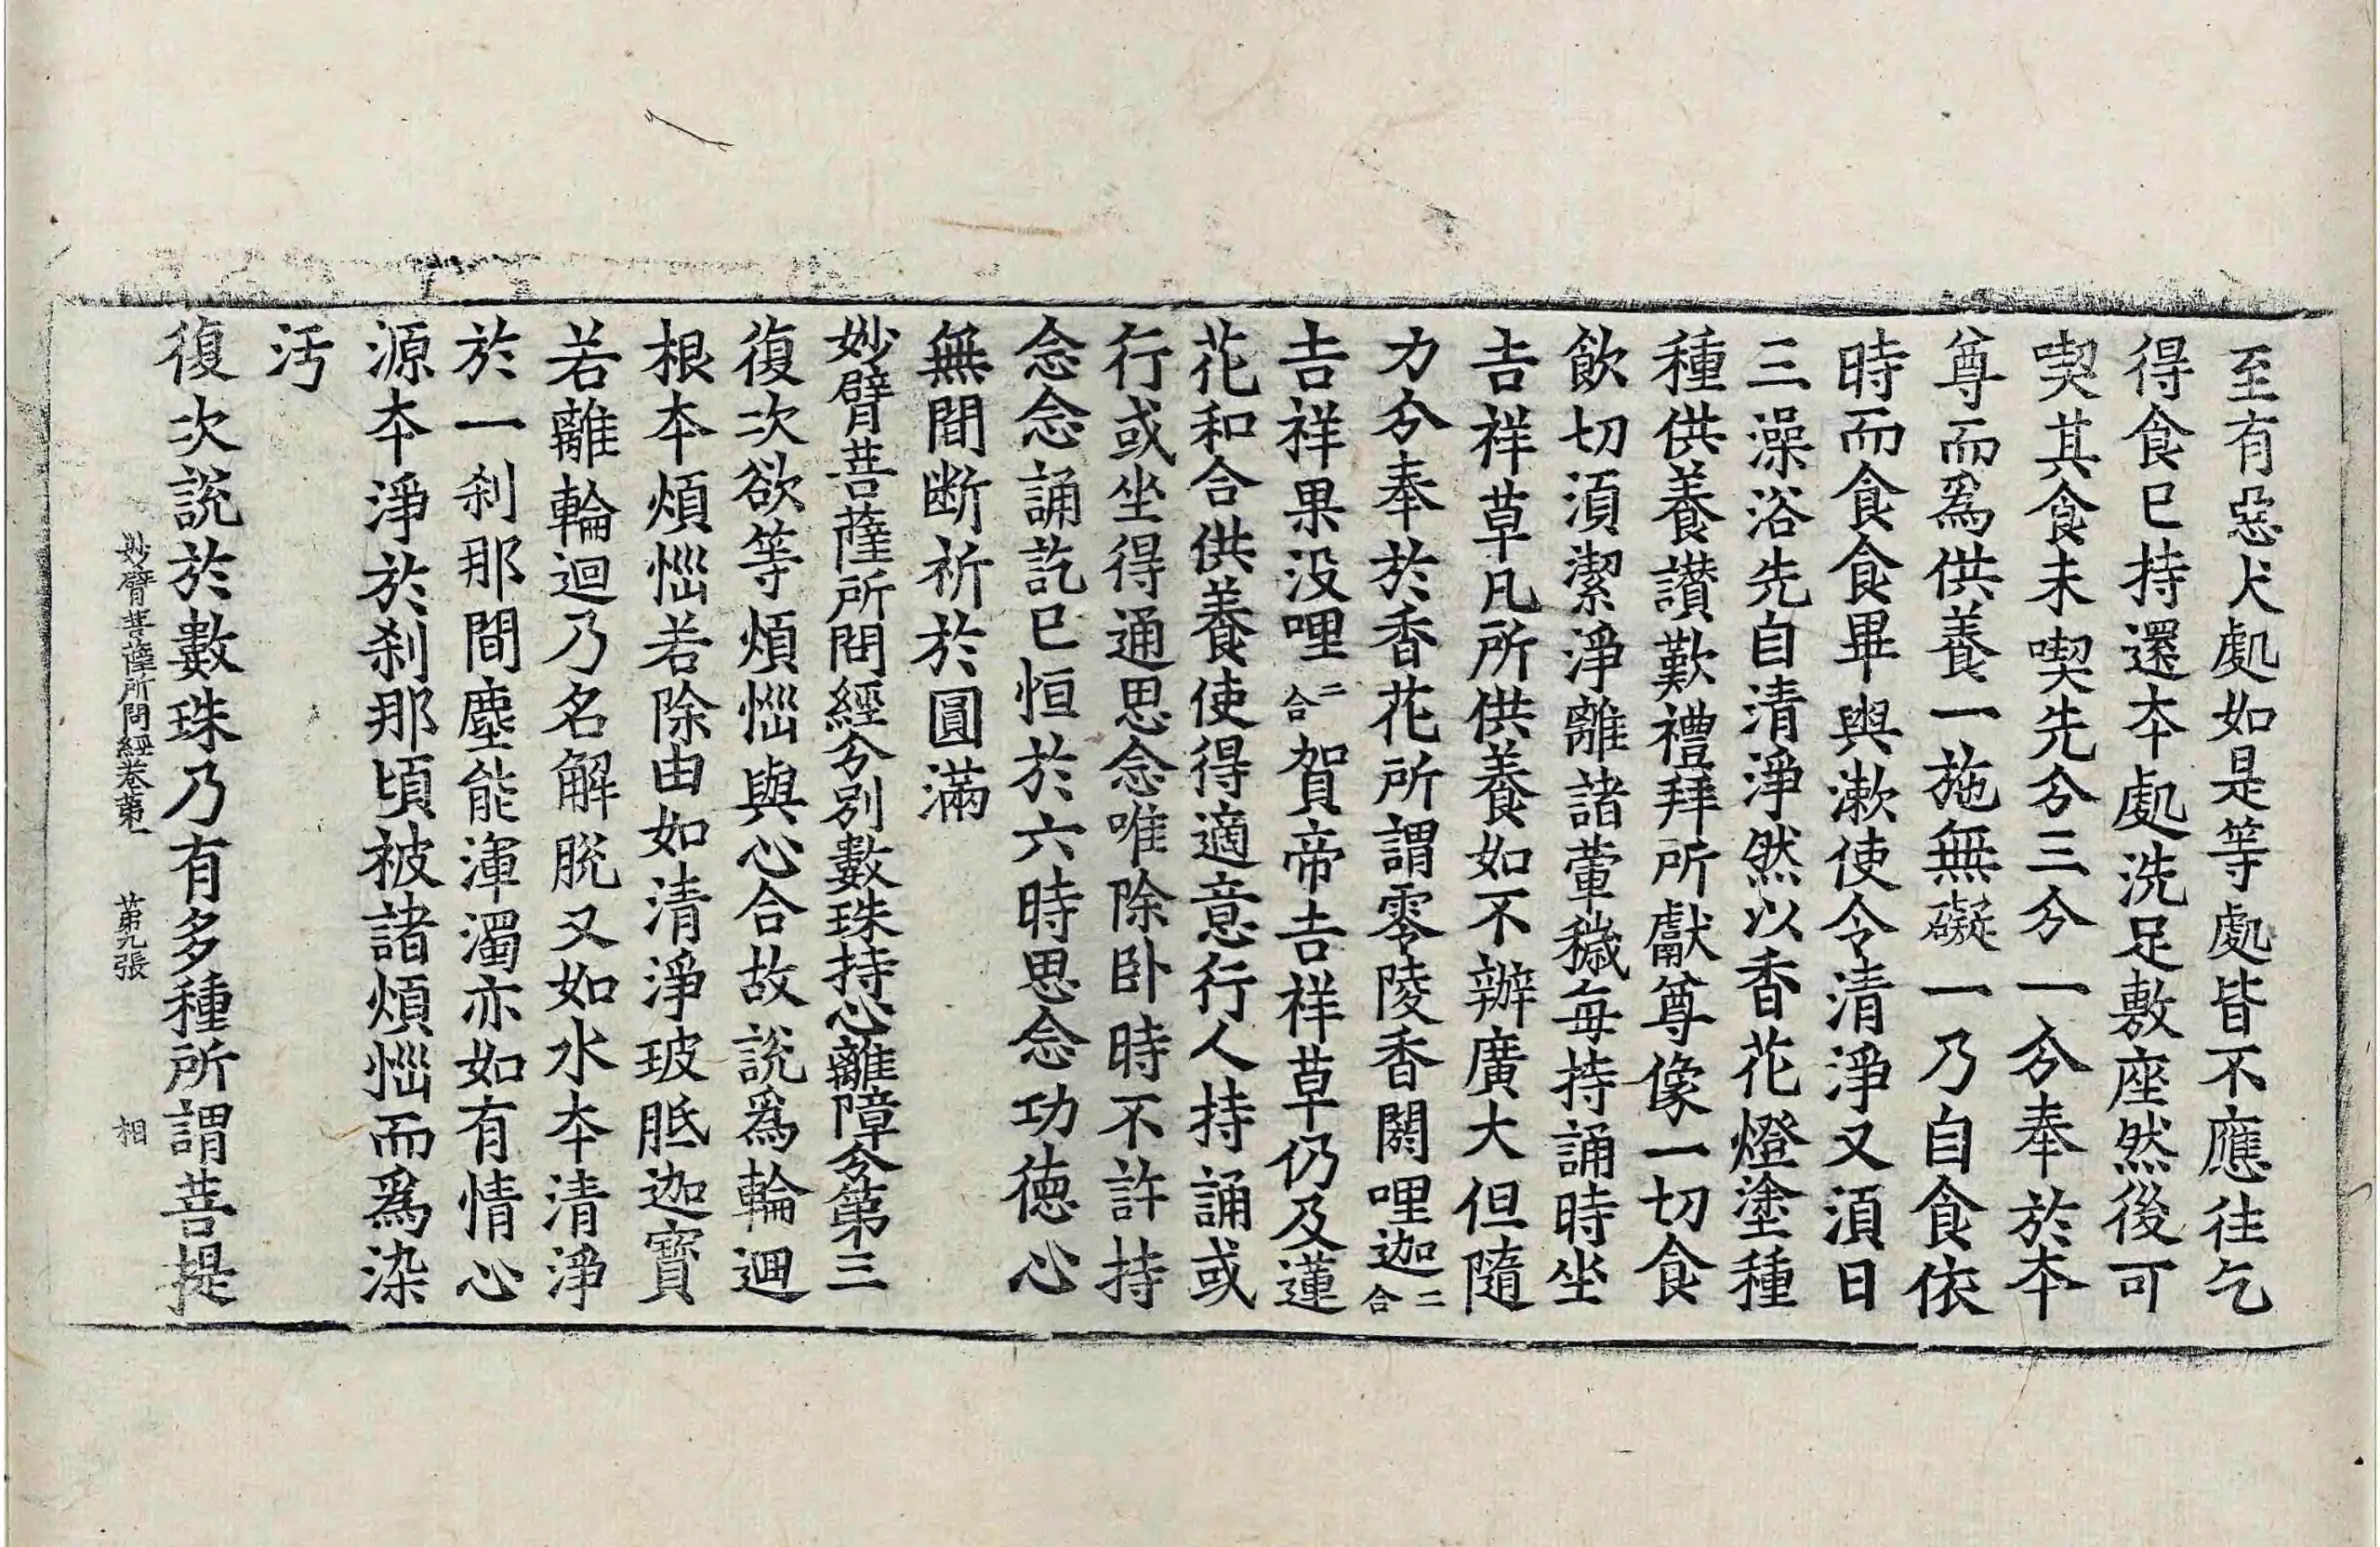 至有惡犬處如是等處皆不應往乞
得食已持還本處洗足敷座然後可
喫其食未喫先分三分一分奉於本
尊而為供養一施無礙一乃自食依
時而食食畢與漱使令清淨又須日
三澡浴先自清淨然以香花燈塗種
種供養讃歎禮拜所獻尊像一切食
飲切須潔淨離諸葷穢每持誦時坐
吉祥草凡所供養如不辦廣大但隨
力分奉於香花所謂零陵香閼哩迦二合
吉祥果没哩二合賀帝吉祥草仍及蓮
花和合供養使得適意行人持誦或
行或坐得通思念唯除卧時不許持
念念誦訖已恒於六時思念功德心
無間断祈於圓滿
妙臂菩薩所問經分別數珠持心離障分第三
復次欲等煩惱與心合故說為輪迴
根本煩惱若除由如清淨玻胝迦寶
若離輪迴乃名解脫又如水本清淨
於一刹那間塵能渾濁亦如有情心
源本淨於刹那頃被諸煩惱而為染
汚
復次說於數珠乃有多種所謂菩提
妙臂菩薩所問經卷第一 第九張 相